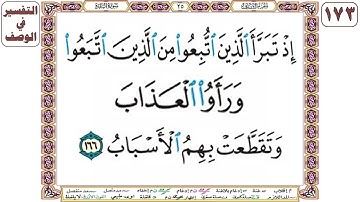 ١٧٣
التفسير
في
الوصف
٢٥
إِذْ تَبَرَّأَ ٱلَّذِينَ ٱتُّبِعُوا۟ مِنَ ٱلَّذِينَ ٱتَّبَعُوا۟
وَرَأَوُا۟ ٱلْعَذَابَ
وَتَقَطَّعَتْ بِهِمُ ٱلْأَسْبَابُ ١٦٦